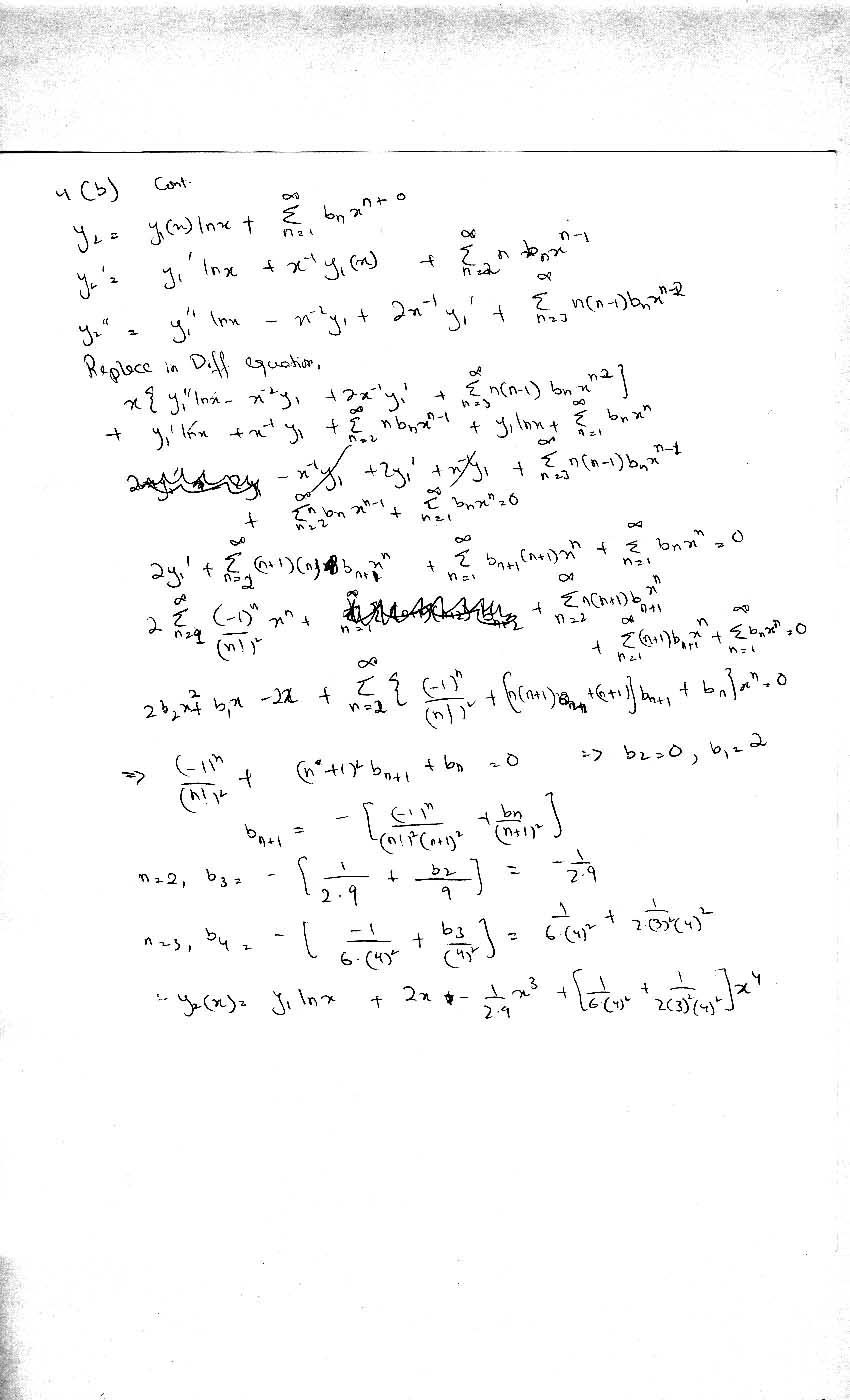 4 (b) Cont.
y₂ = y₁(x) lnx + Σ_{n=1}^{∞} bₙ x^{n+0}
y₂' = y₁' lnx + x⁻¹ y₁(x) + Σ_{n=2}^{∞} n bₙ x^{n-1}
y₂'' = y₁'' lnx - x⁻² y₁ + 2x⁻¹ y₁' + Σ_{n=3}^{∞} n(n-1) bₙ x^{n-2}
Replace in Diff equation,
x { y₁'' lnx - x⁻² y₁ + 2x⁻¹ y₁' + Σ_{n=3}^{∞} n(n-1) bₙ x^{n-2} ]
+ y₁' lnx + x⁻¹ y₁ + Σ_{n=2}^{∞} n bₙ x^{n-1} + y₁ lnx + Σ_{n=1}^{∞} bₙ xⁿ
- x⁻¹ y₁ + 2y₁' + x⁻¹ y₁ + Σ_{n=3}^{∞} n(n-1) bₙ x^{n-1}
+ Σ_{n=2}^{∞} n bₙ x^{n-1} + Σ_{n=1}^{∞} bₙ xⁿ = 0
2y₁' + Σ_{n=2}^{∞} (n+1)(n) b_{n+1} xⁿ + Σ_{n=1}^{∞} b_{n+1} (n+1) xⁿ + Σ_{n=1}^{∞} bₙ xⁿ = 0
2 Σ^{∞} (-1)ⁿ/(n!)² xⁿ + Σ_{n=2}^{∞} n(n+1) b_{n+1} xⁿ
+ Σ_{n=1}^{∞} (n+1) b_{n+1} xⁿ + Σ_{n=1}^{∞} bₙ xⁿ = 0
2b₂x² + b₁x - 2x + Σ_{n=2}^{∞} { (-1)ⁿ/(n!)² + [n(n+1) + (n+1)] b_{n+1} + bₙ } xⁿ = 0
⇒ (-1)ⁿ/(n!)² + (n+1)² b_{n+1} + bₙ = 0 ⇒ b₂=0, b₁=2
b_{n+1} = - [ (-1)ⁿ/((n!)²(n+1)²) + bₙ/(n+1)² ]
n=2, b₃ = - [ 1/(2·9) + b₂/9 ] = - 1/(2·9)
n=3, b₄ = - [ -1/(6·(4)²) + b₃/(4)² ] = 1/(6·(4)²) + 1/(2·(3)²(4)²)
∴ y₂(x) = y₁ lnx + 2x - 1/(2·9) x³ + [ 1/(6(4)²) + 1/(2(3)²(4)²) ] x⁴